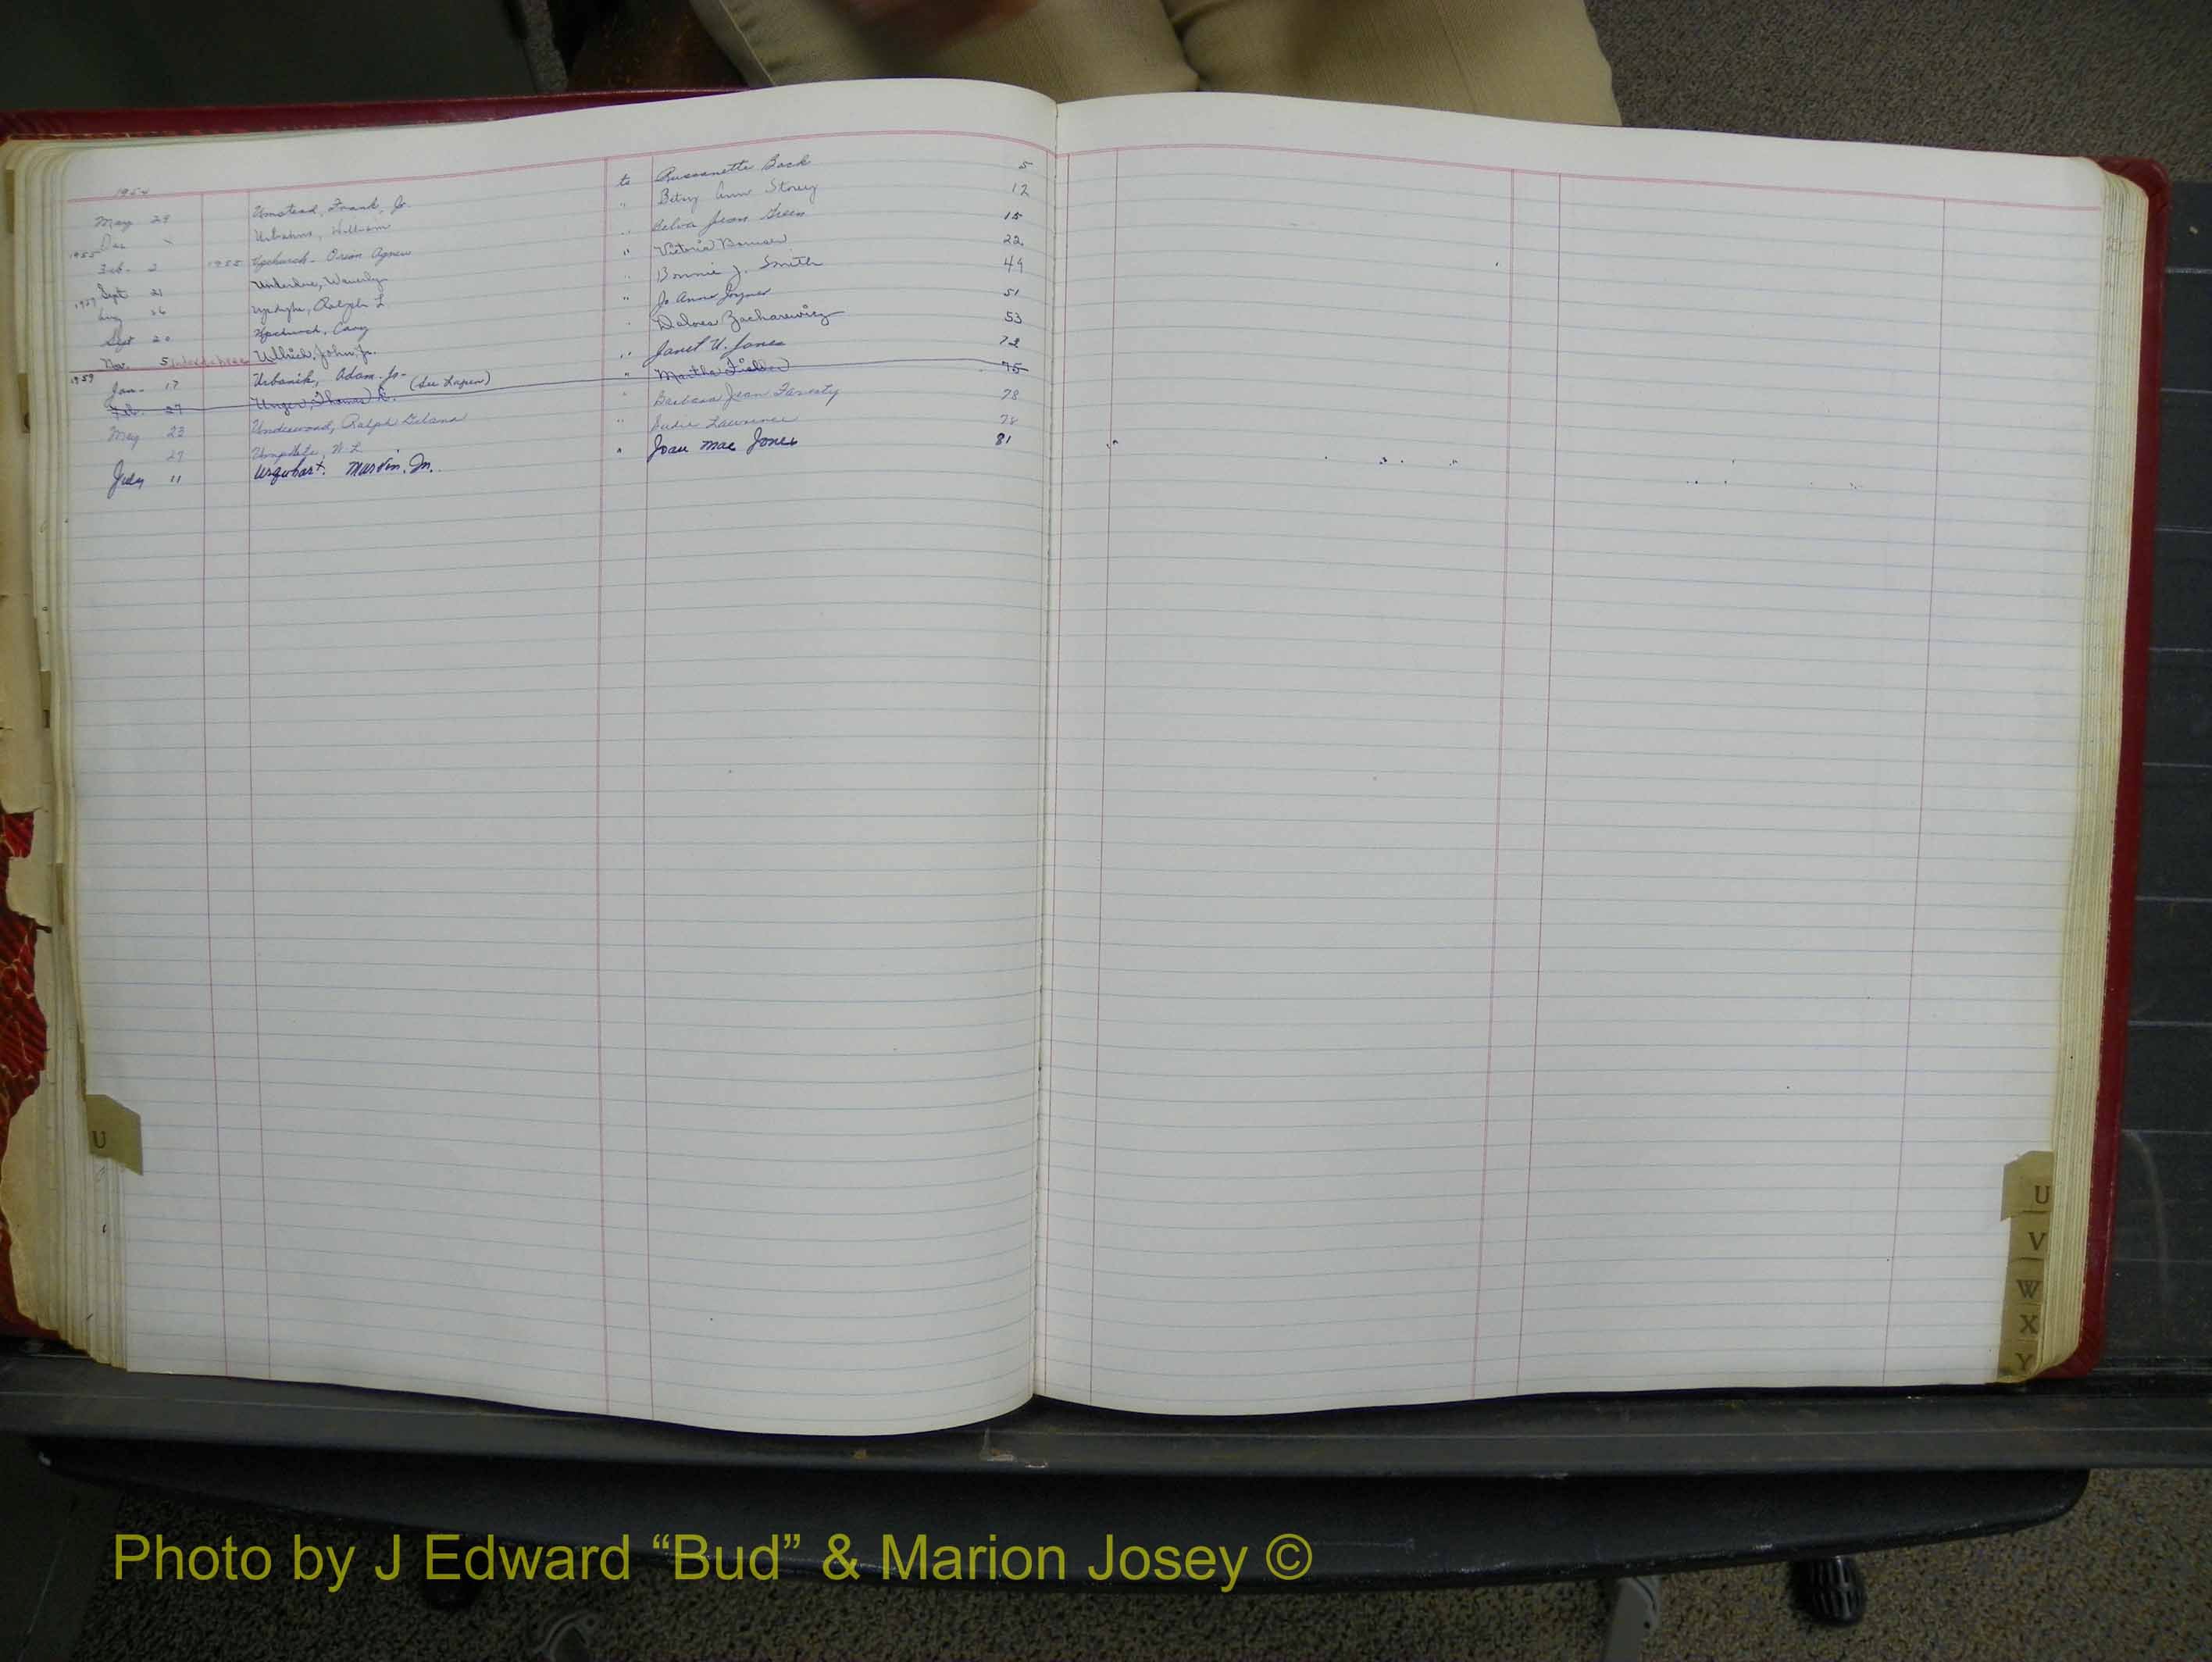 1954
May 28 Umstead, Frank, Jr. to Russanette Back 5
Dec Urbahns, William " Betsy Ann Storey 12
1955
Feb. 2 1955 Upchurch - Orion Agnew " Jean Green 15
Sept 21 Underdue, Waverly " Victoria 22
1957
Aug 26 Updyke, Ralph L " Bonnie J. Smith 49
Sept 20 Upchurch, Cary " Jo Anne Joyner 51
Nov. 5 Ullrich, John, Jr. " Dolores Zacharewicz 53
1959
Jan- 17 Urbanik, Adam. Jr- " Janet U. Jones 72
Feb. 27 Unger, Thomas E. (See Lapen) " Martha Fielder 75
May 23 Underwood, Ralph Delano " Barbara Jean 78
27 W. L " Sudie Lawrence 78
July 11 Urquhart. Marvin. Jr. " Joan Mae Jones 81
U
U
V
W
X
Y
Photo by J Edward “Bud” & Marion Josey ©